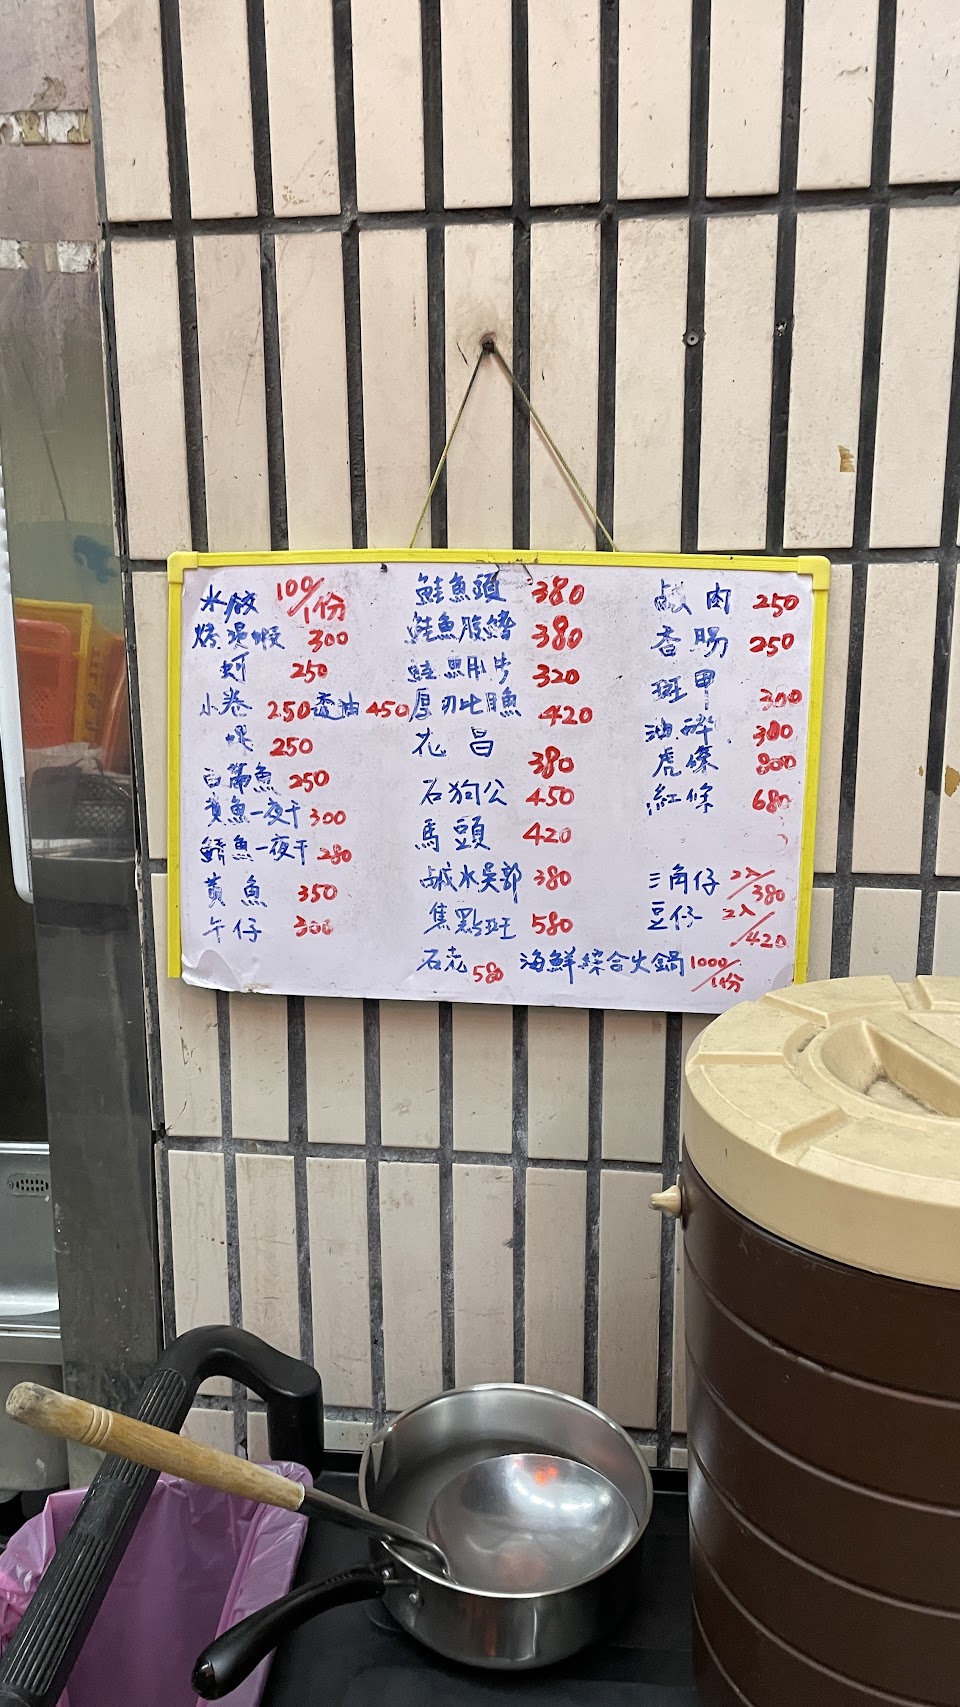 水餃 100/1份
烤燙蝦 300
蚵 250
小卷 250 透油 450
250
白鯧魚 250
黃魚一夜干 300
鯖魚一夜干 280
黃魚 350
午仔 300
鮭魚頭 380
鮭魚腹鰭 380
鮭魚 320
厚切比目魚 420
花昌 380
石狗公 450
馬頭 420
鹹水吳郭 380
焦點斑 580
石老 580
海鮮綜合火鍋 1000/1份
鹹肉 250
香腸 250
斑甲 300
油 380
虎條 800
紅條 680
三角仔 2入/380
豆仔 2入/420